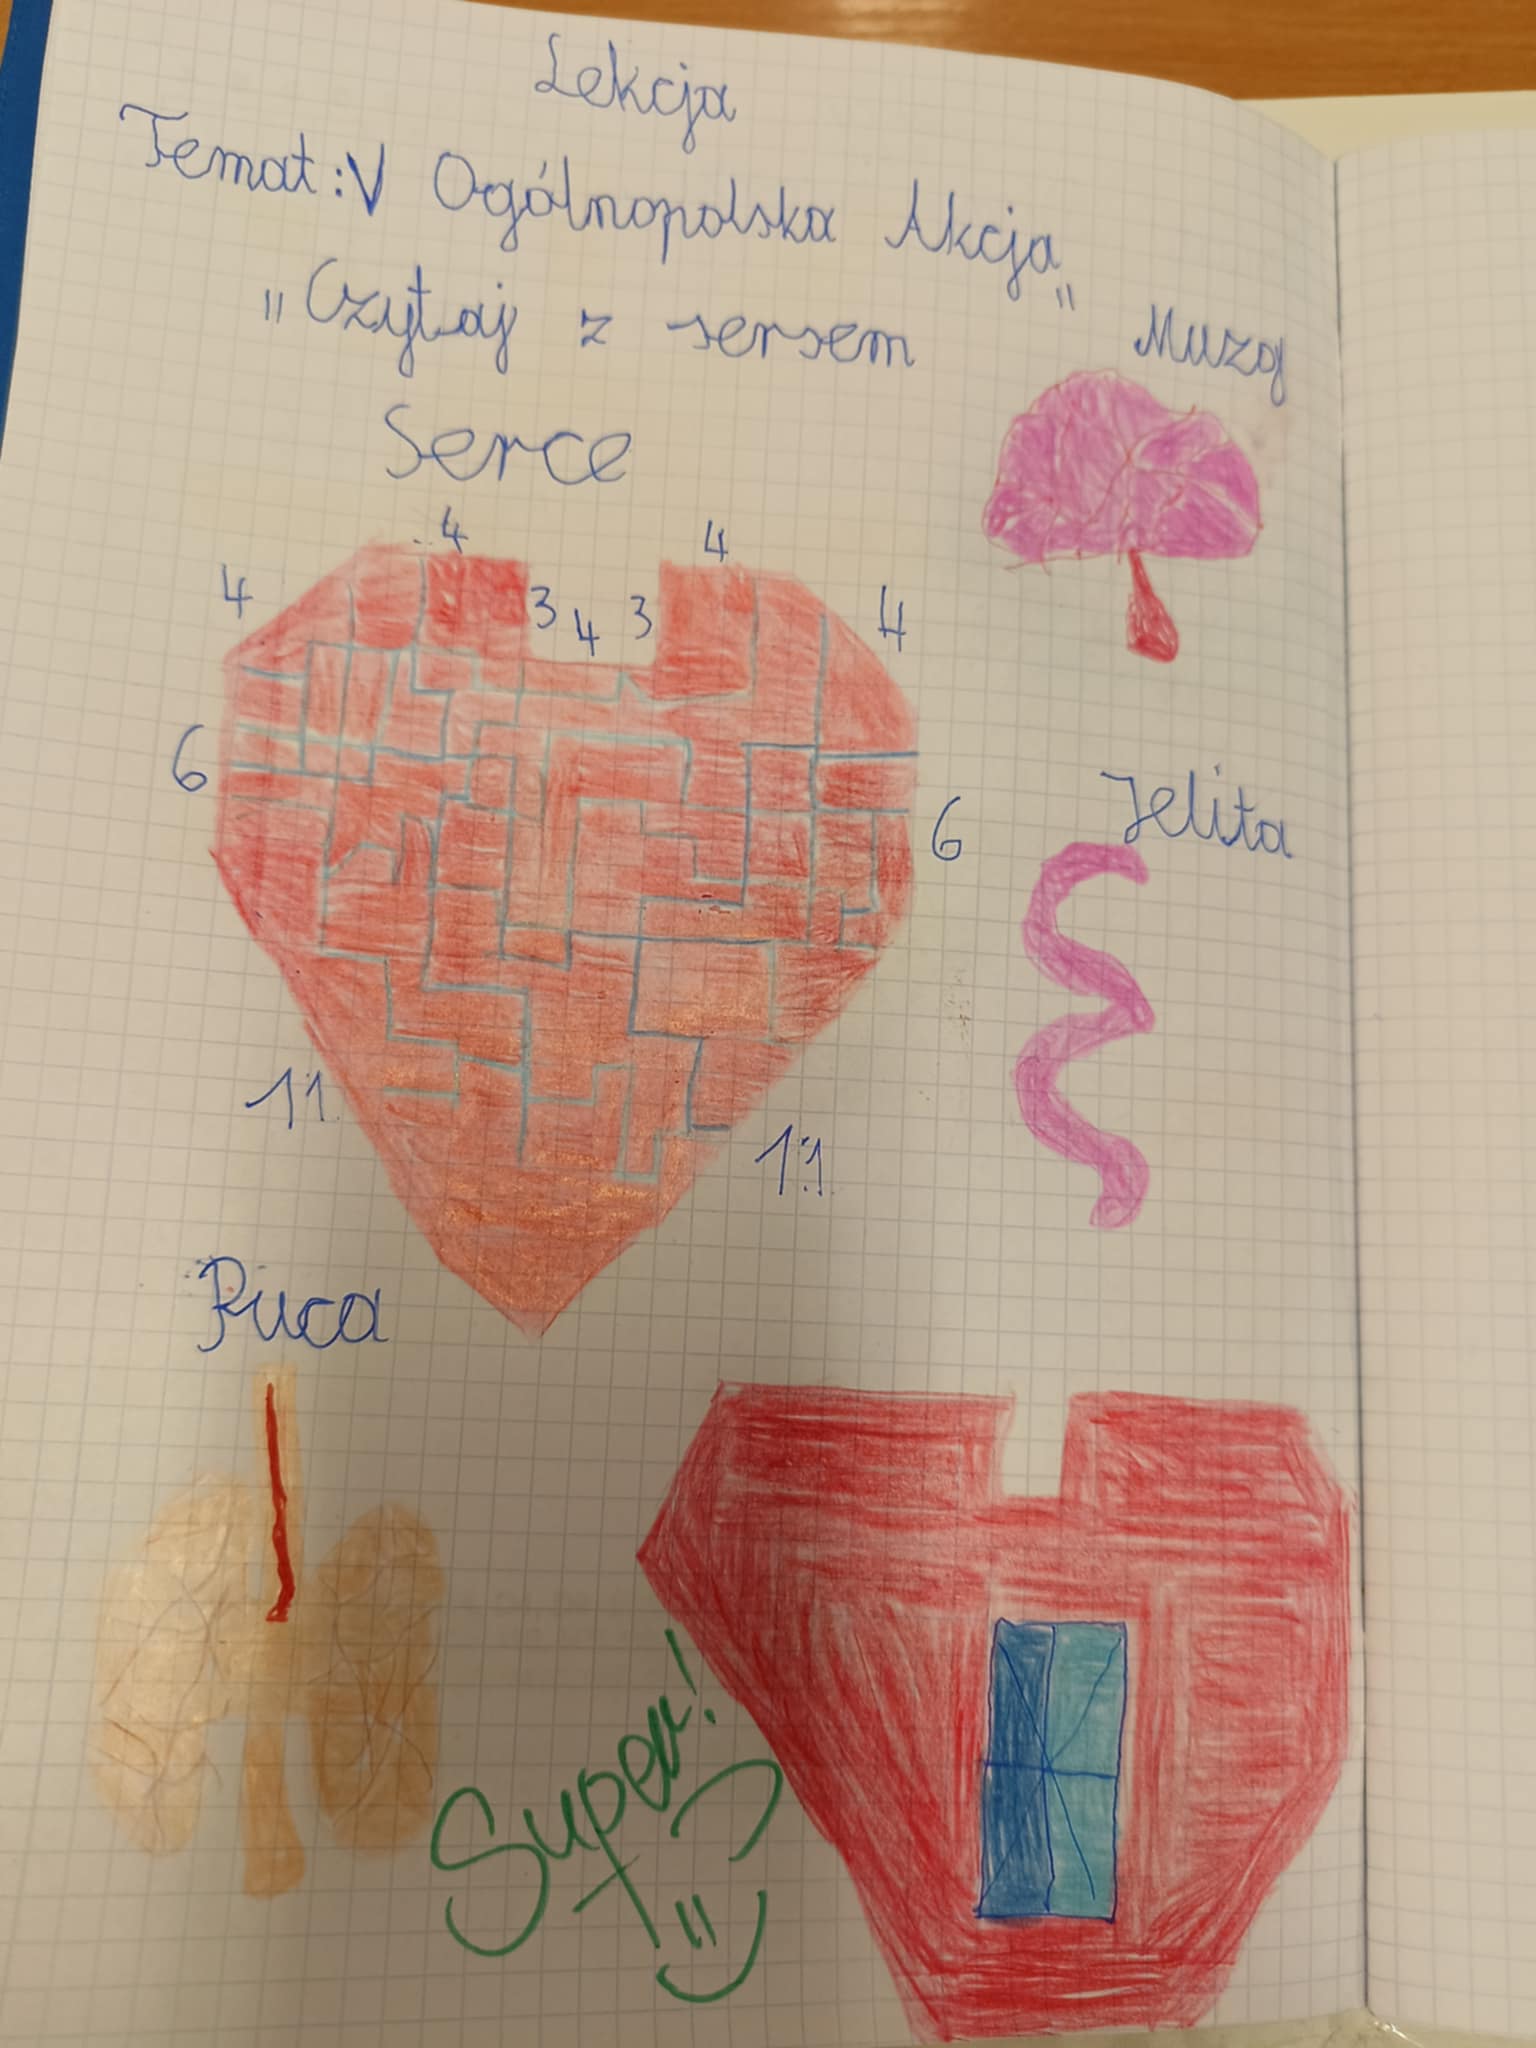 Lekcja
Temat: V Ogólnopolska Akcja
„Czytaj z sersem"
Muzg
Serce
4
4
4
4
3
4
3
6
6
Jelita
11
11
Puca
Super!